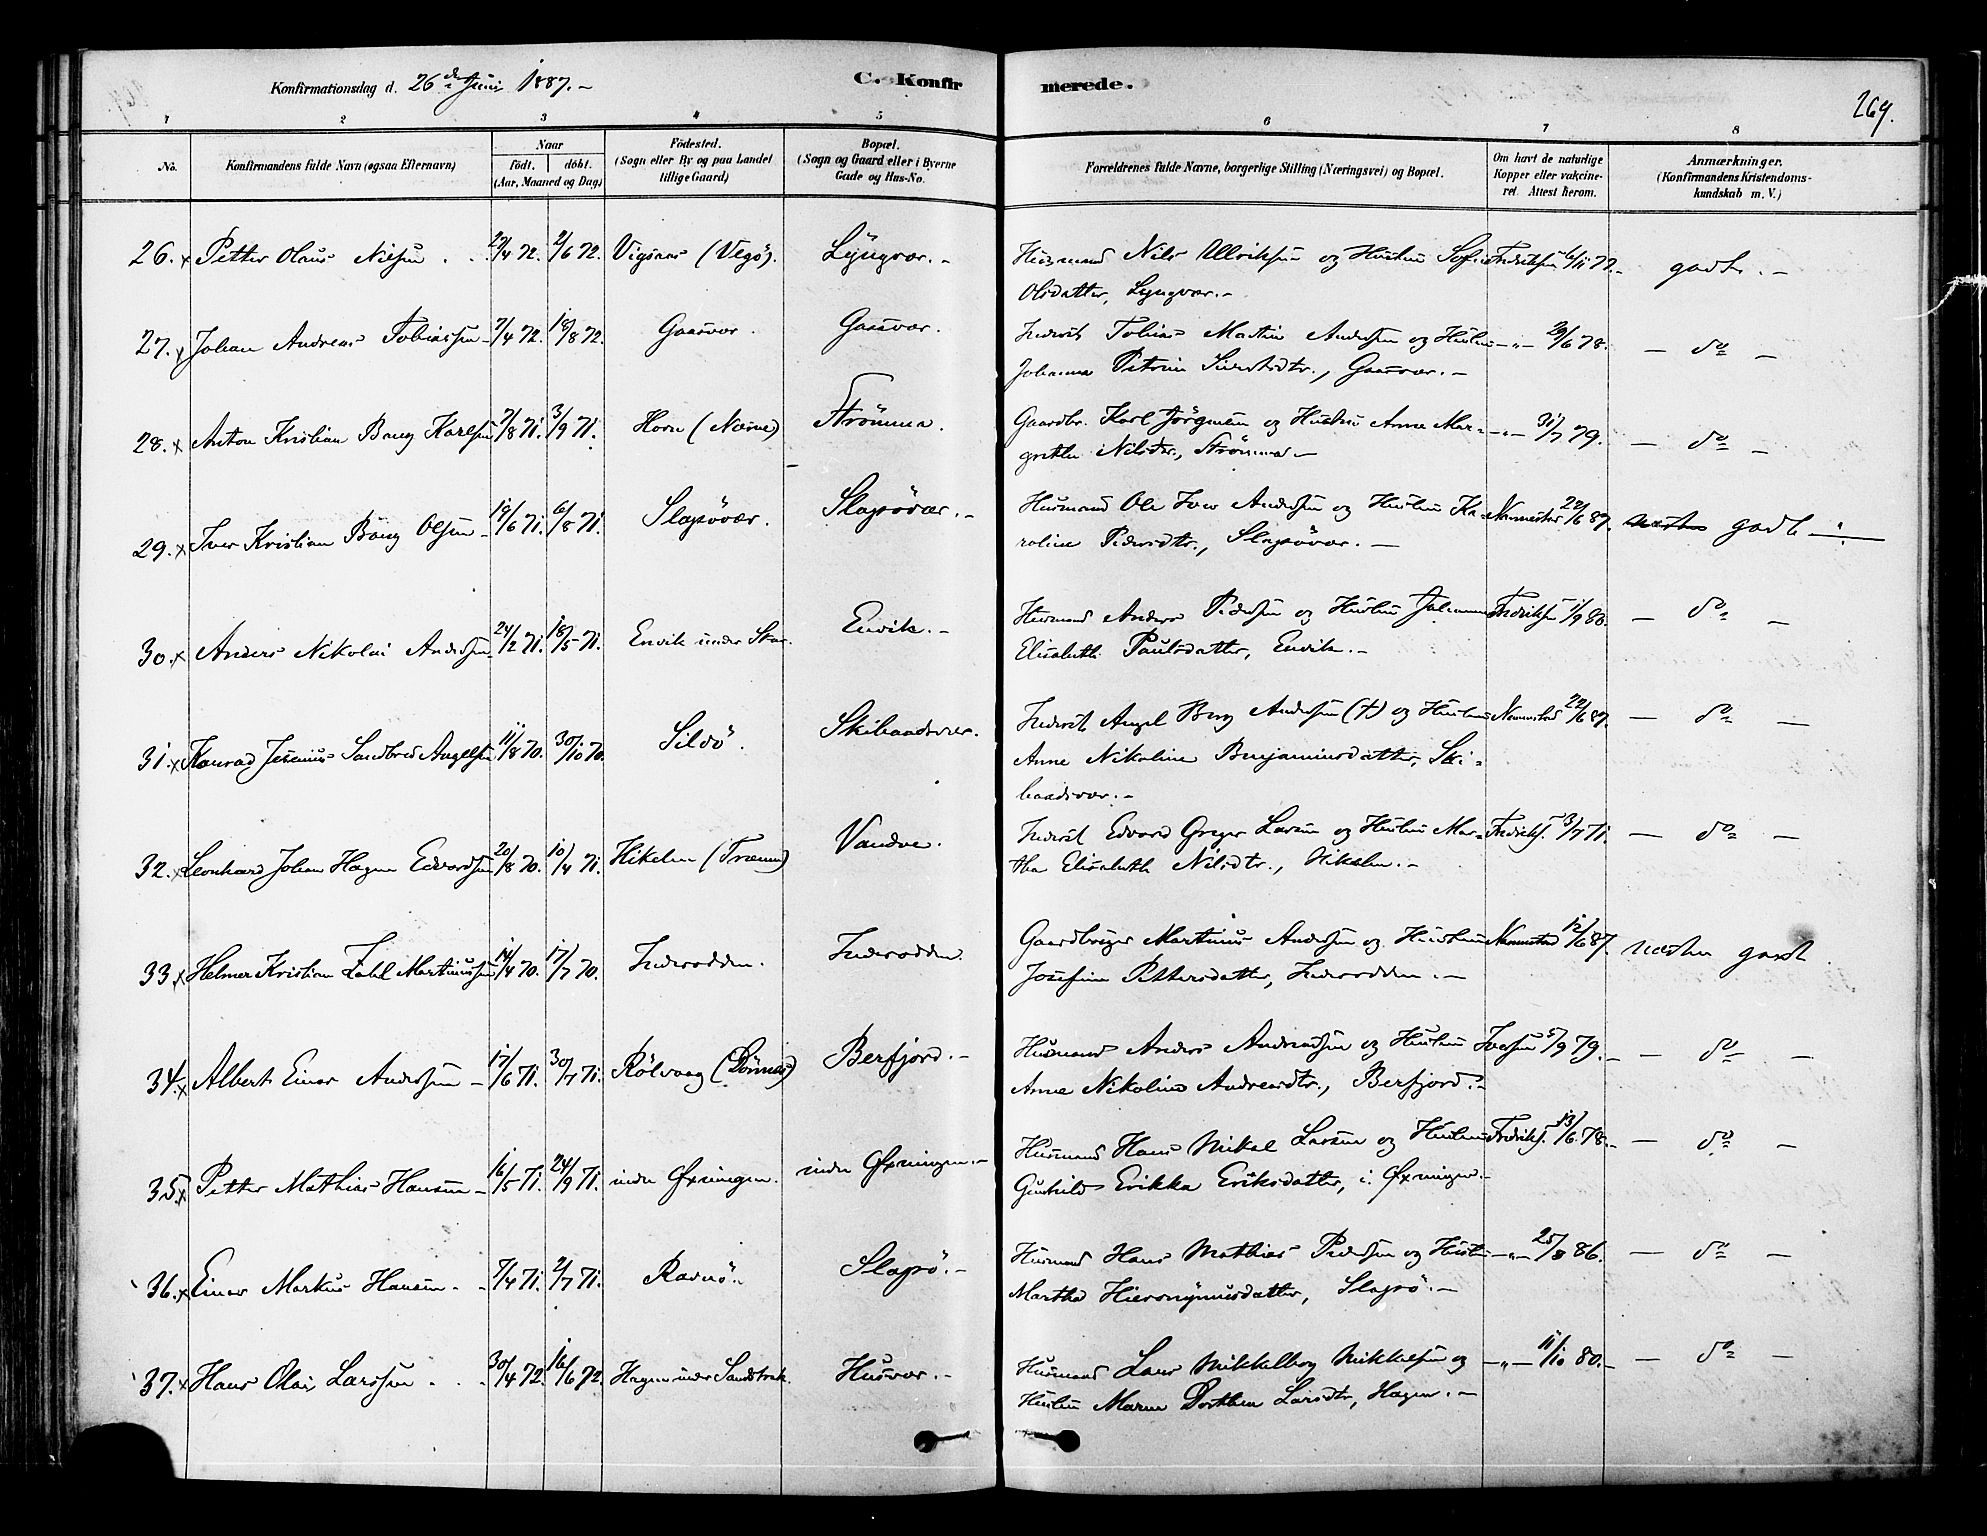 Konfirmationsdag d. 26de Juni 1887.-
C. Konfir
merede.
269.
1 2 3 4 5 6 7 8
No.
Konfirmandens fulde Navn (ogsaa Efternavn)
Naar
født. døbt.
(Aar, Maaned og Dag)
Fødested.
(Sogn eller By og paa Landet
tillige Gaard)
Bopæl.
(Sogn og Gaard eller i Byerne
Gade og Hus-No.
Forældrenes fulde Navne, borgerlige Stilling (Næringsvei) og Bopæl.
Om havt de naturlige
Kopper eller vakcine-
ret. Attest herom.
Anmærkninger.
(Konfirmandens Kristendoms-
kundskab m. V.)
26. x Petter Olaus Nilsen . . 29/4 72. 2/6 72. Vigsaas (Vegö). Lyngvær.- Husmand Nils Ulriksen og Hustru Sofie Fredriksen 6/11 77.- godt.-
Olsdatter, Lyngvær.-
27. x Johan Andreas Tobiassen- 7/4 72. 18/8 72. Gaasvær. Gaasvær. Inderst Tobias Martin Andersen og Hustru -"- 29/6 78. - do -
Johanna Petrine Sivertsdtr., Gaasvær.-
28. x Anton Kristian Bang Karlsen 7/8 71. 3/9 71. Horn (Næsne) Strömmen. Gaardbr. Karl Jörgensen og Hustru Anne Mar- -"- 31/7 79. - do -
grethe Nilsdtr., Strömmen.-
29. x Iver Kristian Bang Olsen- 19/6 71. 6/8 71. Slapövær. Slapövær.- Husmand Ole Iver Andersen og Hustru Ka- Nennestad 22/6 87. godt
roline Pedersdtr., Slapövær.-
30. x Anders Nikolai Andersen 24/2 71. 18/5 71. Envik under Skar. Envik.- Husmand Anders Pedersen og Hustru Johanna Fredriksen 1/9 80. - do -
Elisabeth Paulsdatter, Envik.-
31. x Konrad Jesenius Sandbred Angelsen 11/8 70. 30/10 70. Sildö. Skibaadsvær. Inderst Angel Berg Andersen (+) og Hustru Nennestad 22/6 87. - do -
Anne Nikoline Benjaminsdatter, Ski-
baadsvær.-
32. x Leonhard Johan Hagen Edvardsen 20/8 70. 10/4 71. Hikelen (Trænen) Vandve. Inderst Edvard Greger Larsen og Hustru Mar- Fredriks. 3/7 71. - do -
tha Elisabeth Nilsdtr., Hikelen.-
33 x Helmer Kristian Zahl Martinussen 14/4 70. 17/7 70. Inderodden. Inderodden. Gaardbruger Martinus Andersen og Hustru Nennestad 12/6 87. næsten godt.
Josefine Pettersdatter, Inderodden.-
34. x Albert Einar Andersen- 17/6 71. 30/7 71. Rölvaag (Dönnes) Berfjord.- Husmand Anders Andreassen og Hustru Iversen 5/9 79. - do -
Anne Nikoline Andreasdtr., Berfjord.-
35. x Petter Mathias Hansen- 16/5 71. 24/9 71. indre Øxningen. indre Øxningen.- Husmand Hans Mikal Larsen og Hustru Fredriks. 13/6 78.- - do -
Gunhild Erikka Eriksdatter, i. Øxningen.-
36. x Einar Markus Hansen . - 7/4 71. 2/7 71. Ravnö. Slapö.- Husmand Hans Mathias Pedersen og Hustru -"- 25/8 86. - do -
Martha Hieronymusdatter, Slapö.-
37. x Hans Olai Larssen . . . 30/4 72. 16/6 72. Hagen under Sandstrak. Husvær.- Husmand Lars Mikkelborg Mikkelsen og -"- 11/10 80.- - do -
Hustru Maren Dorthea Larsdtr, Hagen.-